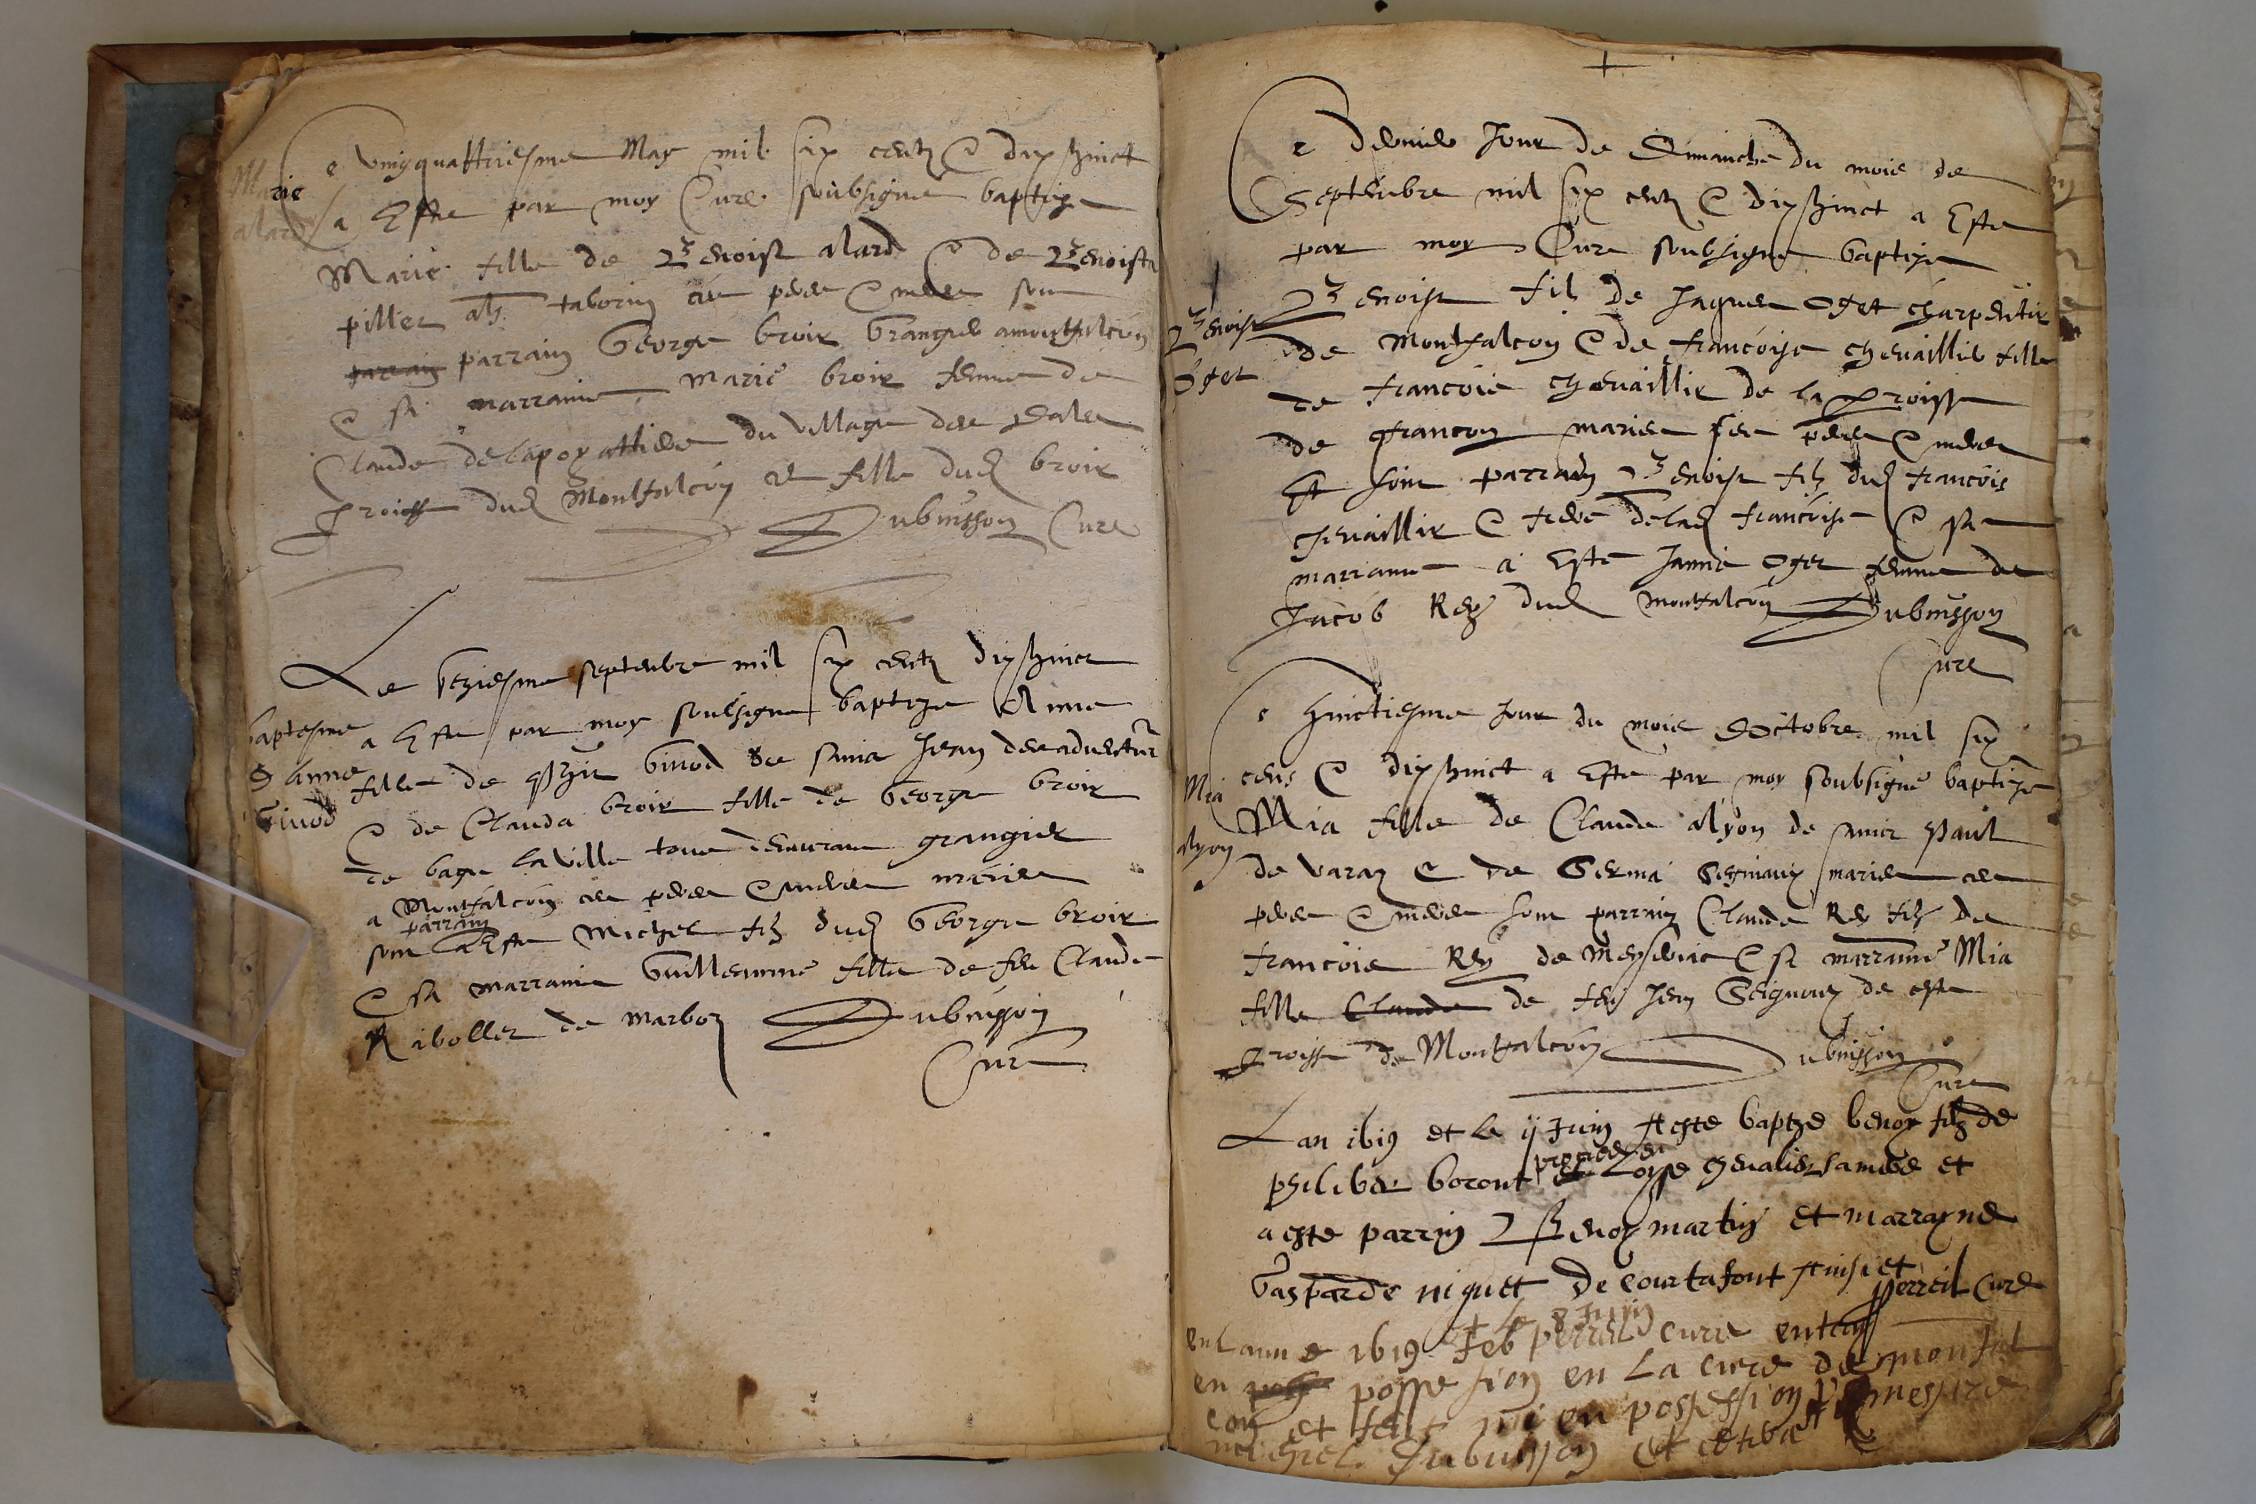 Marie
alard
Ce vingquattriesme May mil six centz & dixhuict
a este par moy Cure soubsigne baptize
Marie fille de Benoist alard & de Benoiste
pillet als taborin ces pere & mere son
parrain parrain George broir grangier a montfalcon
& sa marraine Marie broir femme de
Claude delapoyattiere du village des
proisse dud Montfalcon & fille dud broir
Dubuisson Cure
baptesme
d anne
Guiod
Le septembre mil six centz dixhuict
a este par moy soubsigne baptize Anne
fille de Guiod de sainct Jean
& de Clauda broir fille de George broir
de bage la ville tous demurant grangier
a Montfalcon ces pere & mere maries
parrain
son a este Michel filz dud George broir
& sa marraine Guillemme fille de feu Claude
Ribollet de marboz Dubuisson
Cure
Benoist
Oget
Ce dernier Jour de Dimanche du mois de
Septembre mil six centz & dixhuict a este
par moy Cure soubsigne baptize
Benoist filz de Jaques Oget charpentier
de Montfalcon & de francoise chevaillier fille
de francois chevaillier de la proisse
de maries ses pere & mere
Et son parrain Benoist filz dud francois
chevaillier & frere delad francoise & sa
marraine a este Jamie Oget femme de
Jacob Rey dud montfalcon Dubuisson
Cure
Mia
alyon
Ce huictiesme Jour du mois doctobre mil six
cens & dixhuict a este par moy soubsigne baptize
Mia fille de Claude alyon de sainct Paul
de varax & de Germa maries ces
pere & mere son parrain Claude Rey filz de
francois Rey de & sa marraine Mia
fille Claude de feu Jean de ceste
proisse de Montfalcon Dubuisson
Cure
Lan 1619 et le ij Juin a este baptze benoy filz de
philiber boront et Loyse chevalier sa mere et
a este parrin Benoy martin et marrayne
Gasparde niguet de courtafont ainsi et
perreil cure
le 8 Juin
en l anne 1619 perrel cure entra
en possesion en la cure de monfal
con et feut mi en possession messire
michiel dubuisson et